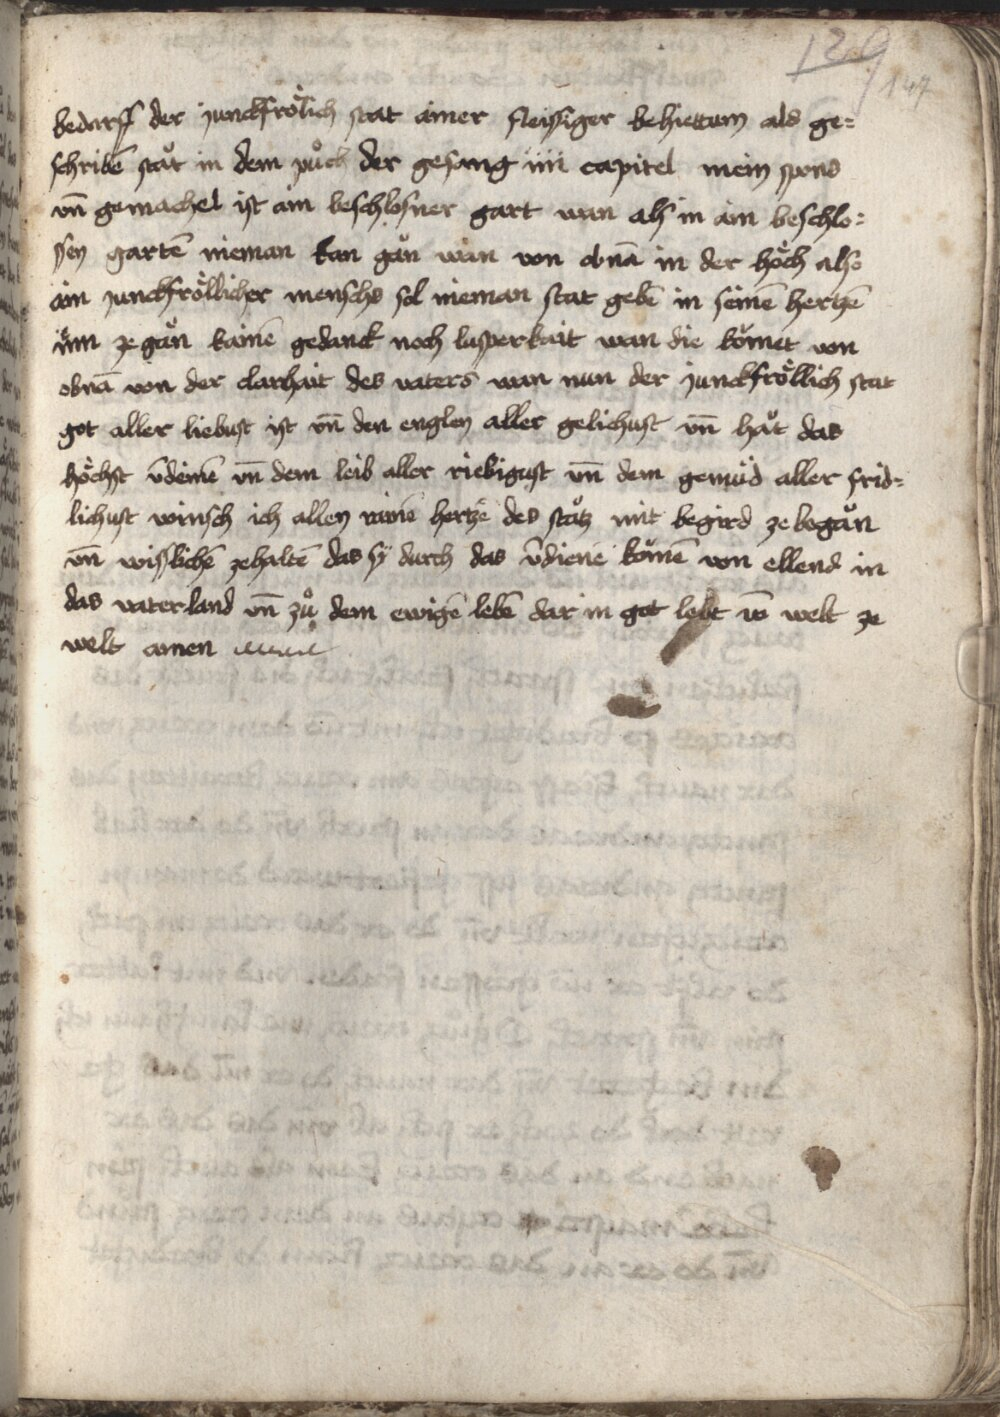 129
147
bedarff der junckfrölich stat ainer fleissiger behiettum als ge=
schribē stǎt in dem pu̇ch der gesang iiii capitel mein spons
vn̄ gemachel ist ain beschlosner gart wan als in ain beschlo=
ssen gartē nieman kan gǎn wan von obnā in der höch also
ain junckfröllicher mensch sol nieman stat gebē in seinē hertzē
inn ze gǎn kainē gedanck noch lusperkait wan die kömēt von
obnā von der clarhait des vaters wan nun der junckfröllich stat
got aller liebust ist vn̄ den englen aller gelichust vn̄ hǎt das
höchst v̄dienē vn̄ dem leib aller riebigust vn̄ dem gemüd aller frid=
lichust winsch ich allen rainē hertzē des stǎtz mit begird ze begǎn
vn̄ wisslichē zehaltē das sÿ durch das v̄dienē kömē von ellend in
das vaterland vn̄ zu̇ dem ewigē lebē dar in got lebt vō welt ze
welt amen